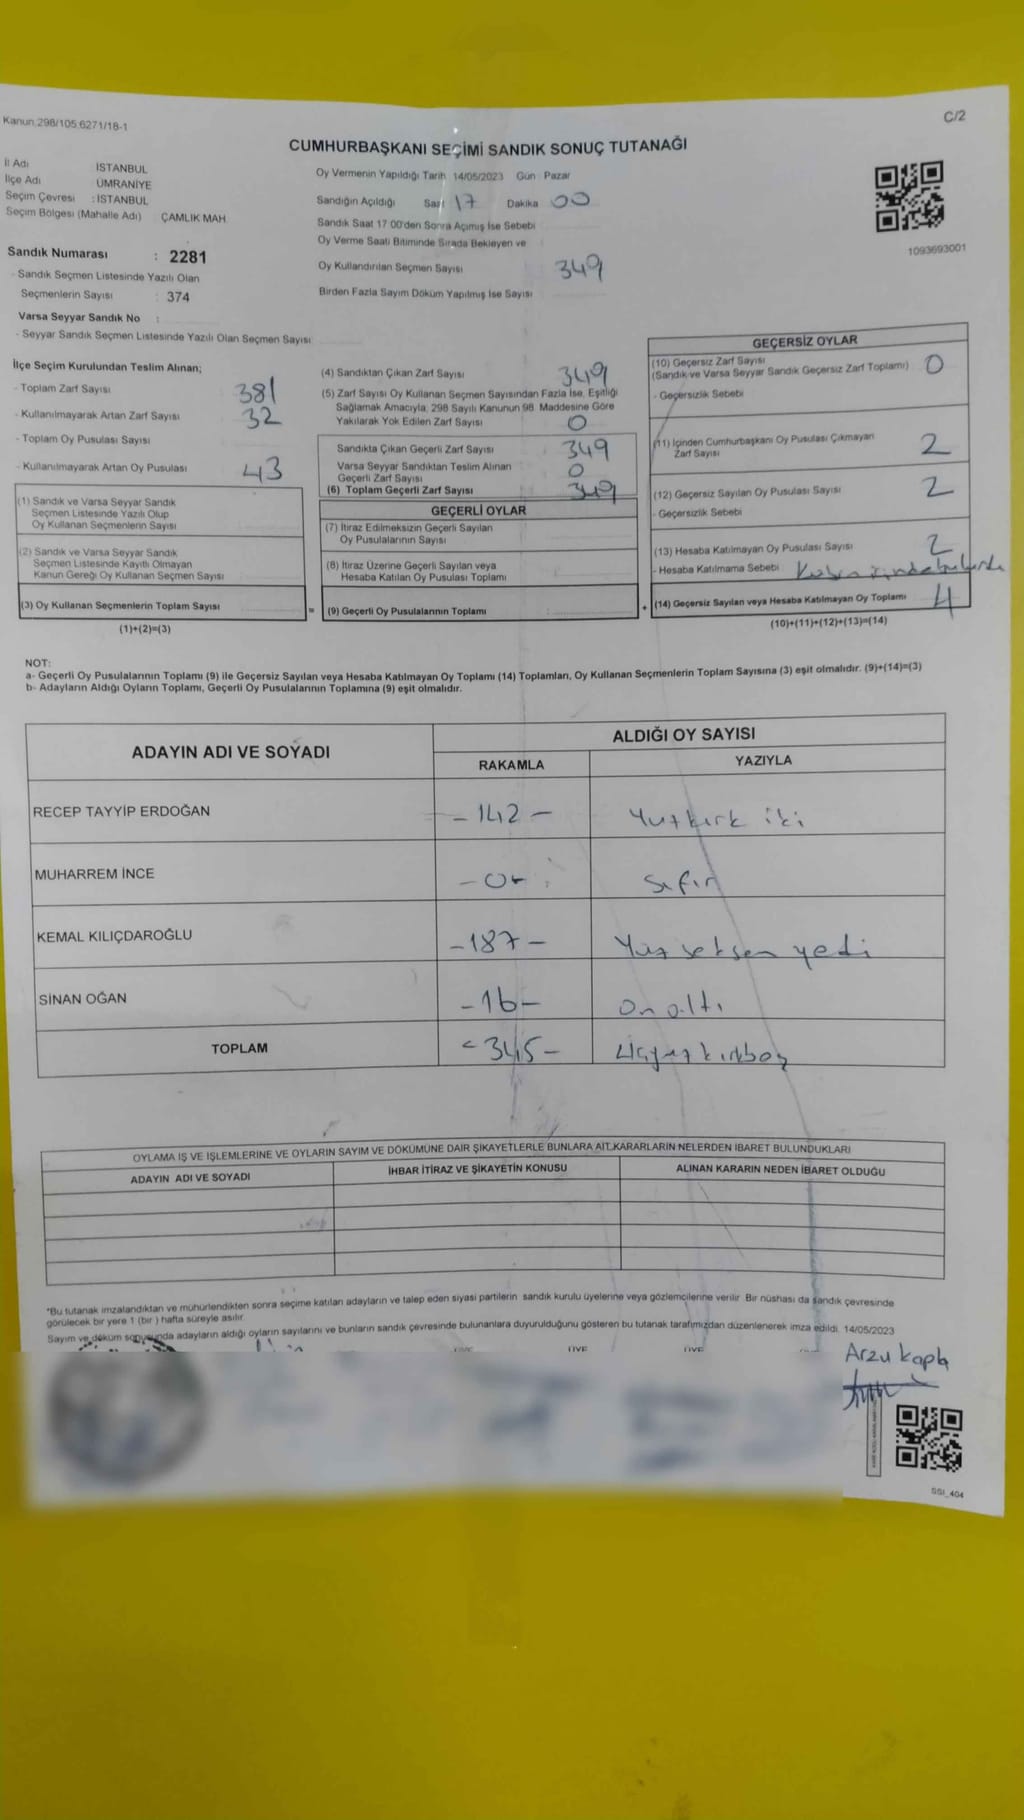 Kanun.298/105.6271/18-1
C/2
CUMHURBAŞKANI SEÇİMİ SANDIK SONUÇ TUTANAĞI
İl Adı İSTANBUL
İlçe Adı ÜMRANİYE
Seçim Çevresi : İSTANBUL
Seçim Bölgesi (Mahalle Adı) ÇAMLIK MAH
Sandık Numarası : 2281
- Sandık Seçmen Listesinde Yazılı Olan
Seçmenlerin Sayısı : 374
Varsa Seyyar Sandık No :
- Seyyar Sandık Seçmen Listesinde Yazılı Olan Seçmen Sayısı
Oy Vermenin Yapıldığı Tarih 14/05/2023 Gün : Pazar
Sandığın Açıldığı Saat 17 Dakika 00
Sandık Saat 17 00'den Sonra Açımış İse Sebebi
Oy Verme Saati Bitiminde Sırada Bekleyen ve
Oy Kullandırılan Seçmen Sayısı 349
Birden Fazla Sayım Döküm Yapılmış İse Sayısı
1093693001
İlçe Seçim Kurulundan Teslim Alınan;
- Toplam Zarf Sayısı 381
- Kullanılmayarak Artan Zarf Sayısı 32
- Toplam Oy Pusulası Sayısı
- Kullanılmayarak Artan Oy Pusulası 43
(1) Sandık ve Varsa Seyyar Sandık
Seçmen Listesinde Yazılı Olup
Oy Kullanan Seçmenlerin Sayısı
(2) Sandık ve Varsa Seyyar Sandık
Seçmen Listesinde Kayıtlı Olmayan
Kanun Gereği Oy Kullanan Seçmen Sayısı
(3) Oy Kullanan Seçmenlerin Toplam Sayısı =
(1)+(2)=(3)
(4) Sandıktan Çıkan Zarf Sayısı 349
(5) Zarf Sayısı Oy Kullanan Seçmen Sayısından Fazla İse, Eşitliği
Sağlamak Amacıyla, 298 Sayılı Kanunun 98. Maddesine Göre
Yakılarak Yok Edilen Zarf Sayısı 0
Sandıkta Çıkan Geçerli Zarf Sayısı 349
Varsa Seyyar Sandıktan Teslim Alınan
Geçerli Zarf Sayısı 0
(6) Toplam Geçerli Zarf Sayısı 349
GEÇERLİ OYLAR
(7) İtiraz Edilmeksizin Geçerli Sayılan
Oy Pusulalarının Sayısı
(8) İtiraz Üzerine Geçerli Sayılan veya
Hesaba Katılan Oy Pusulası Toplamı
(9) Geçerli Oy Pusulalarının Toplamı : +
GEÇERSİZ OYLAR
(10) Geçersiz Zarf Sayısı
(Sandık ve Varsa Seyyar Sandık Geçersiz Zarf Toplamı) 0
- Geçersizlik Sebebi
(11) İçinden Cumhurbaşkanı Oy Pusulası Çıkmayan
Zarf Sayısı 2
(12) Geçersiz Sayılan Oy Pusulası Sayısı 2
- Geçersizlik Sebebi
(13) Hesaba Katılmayan Oy Pusulası Sayısı 2
- Hesaba Katılmama Sebebi
(14) Geçersiz Sayılan veya Hesaba Katılmayan Oy Toplamı 4
(10)+(11)+(12)+(13)=(14)
NOT:
a- Geçerli Oy Pusulalarının Toplamı (9) ile Geçersiz Sayılan veya Hesaba Katılmayan Oy Toplamı (14) Toplamları, Oy Kullanan Seçmenlerin Toplam Sayısına (3) eşit olmalıdır. (9)+(14)=(3)
b- Adayların Aldığı Oyların Toplamı, Geçerli Oy Pusulalarının Toplamına (9) eşit olmalıdır.
ADAYIN ADI VE SOYADI
ALDIĞI OY SAYISI
RAKAMLA YAZIYLA
RECEP TAYYİP ERDOĞAN -142- Yüzkırk iki
MUHARREM İNCE -0- Sıfır
KEMAL KILIÇDAROĞLU -187- Yüz seksen yedi
SİNAN OĞAN -16- On altı
TOPLAM -345- Üçyüz kırkbeş
OYLAMA İŞ VE İŞLEMLERİNE VE OYLARIN SAYIM VE DÖKÜMÜNE DAİR ŞİKAYETLERLE BUNLARA AİT KARARLARIN NELERDEN İBARET BULUNDUKLARI
ADAYIN ADI VE SOYADI İHBAR İTİRAZ VE ŞİKAYETİN KONUSU ALINAN KARARIN NEDEN İBARET OLDUĞU
*Bu tutanak imzalandıktan ve mühürlendikten sonra seçime katılan adayların ve talep eden siyasi partilerin sandık kurulu üyelerine veya gözlemcilerine verilir. Bir nüshası da sandık çevresinde
görülecek bir yere 1 (bir ) hafta süreyle asılır.
Sayım ve döküm sonusunda adayların aldığı oyların sayılarını ve bunların sandık çevresinde bulunanlara duyurulduğunu gösteren bu tutanak tarafımızdan düzenlenerek imza edildi. 14/05/2023
ÜYE ÜYE
Arzu Kapla
SSI_404